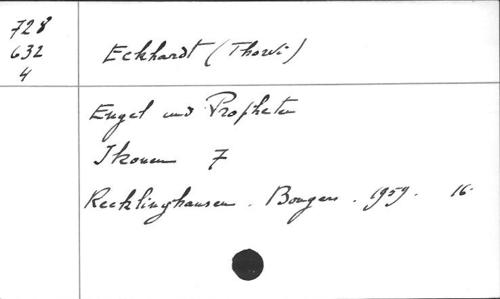 728
632
4
Eckhardt (Thorvi)
Engel und Propheten
Ikonen 7
Recklinghausen. Bongers. 1959. 16.